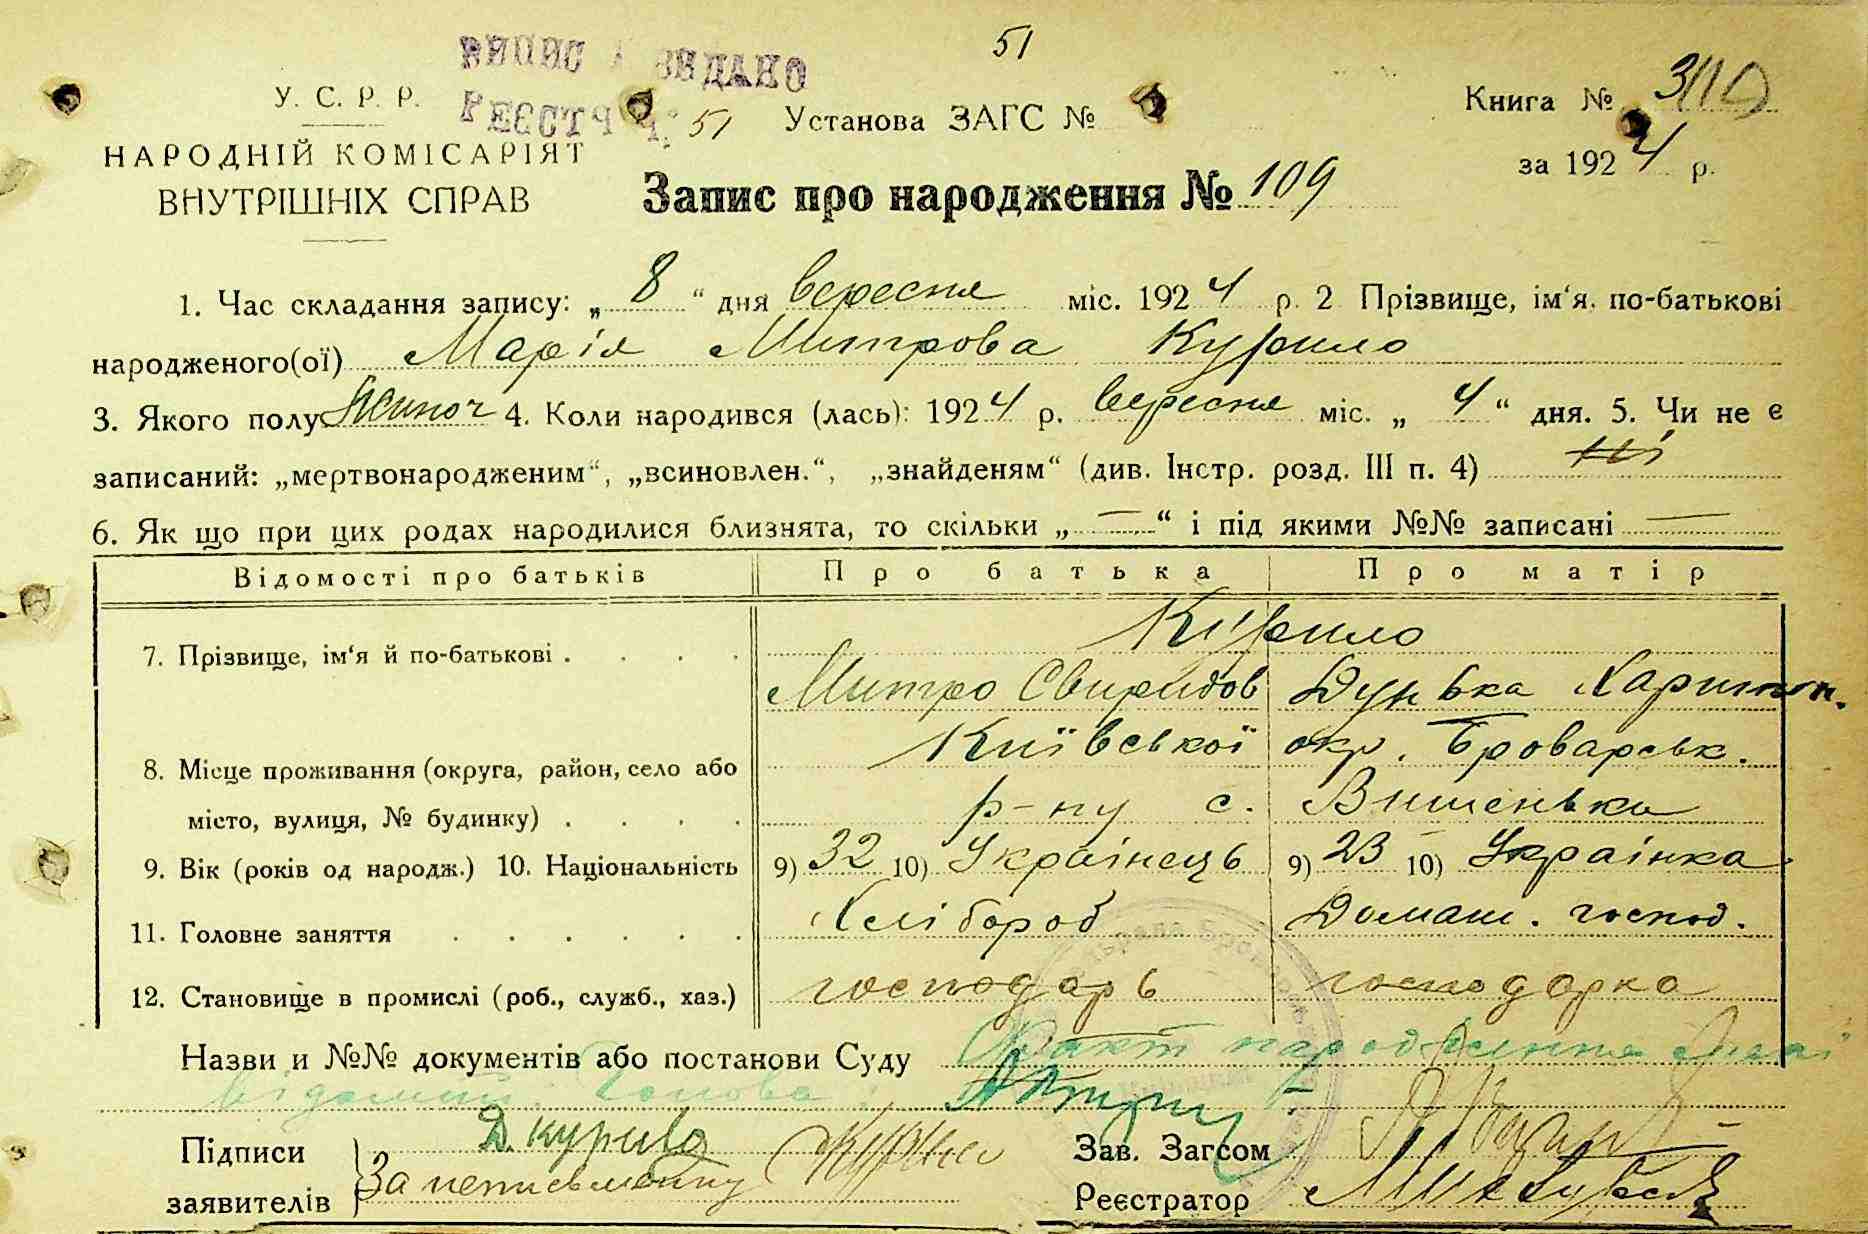 51
ВИПИС ВИДАНО
РЕЄСТР Ч. 51
У. С. Р. Р.
НАРОДНІЙ КОМІСАРІЯТ
ВНУТРІШНІХ СПРАВ
Установа ЗАГС №
Книга № 3/10
за 1924 р.
Запис про народження № 109
1. Час складання запису: „ 8 “ дня вересня міс. 1924 р. 2 Прізвище, ім‘я, по-батькові
народженого(ої) Марія Митрова Курило
3. Якого полу жіноч 4. Коли народився (лась): 1924 р. вересня міс. „ 4 “ дня. 5. Чи не є
записаний: „мертвонародженим“, „всиновлен.“, „знайденям“ (див. Інстр. розд. III п. 4) ні
6. Як що при цих родах народилися близнята, то скільки „ — “ і під якими №№ записані —
Відомості про батьків Про батька Про матір
7. Прізвище, ім‘я й по-батькові . . . . Курило
Митро Свиридов Дунька Харитон.
8. Місце проживання (округа, район, село або Київської окр. Броварськ.
місто, вулиця, № будинку) . . . . р-ну с. Вишенька
9. Вік (років од народж.) 10. Національність 9) 32 10) Українець 9) 23 10) Українка
11. Головне заняття . . . . . . Хлібороб Домаш. господ.
12. Становище в промислі (роб., служб., хаз.) господарь господарка
Назви и №№ документів або постанови Суду Факт народження мені
відомий. Голова
Підписи Д. курило Зав. Загсом
заявителів За неписьменну Реєстратор